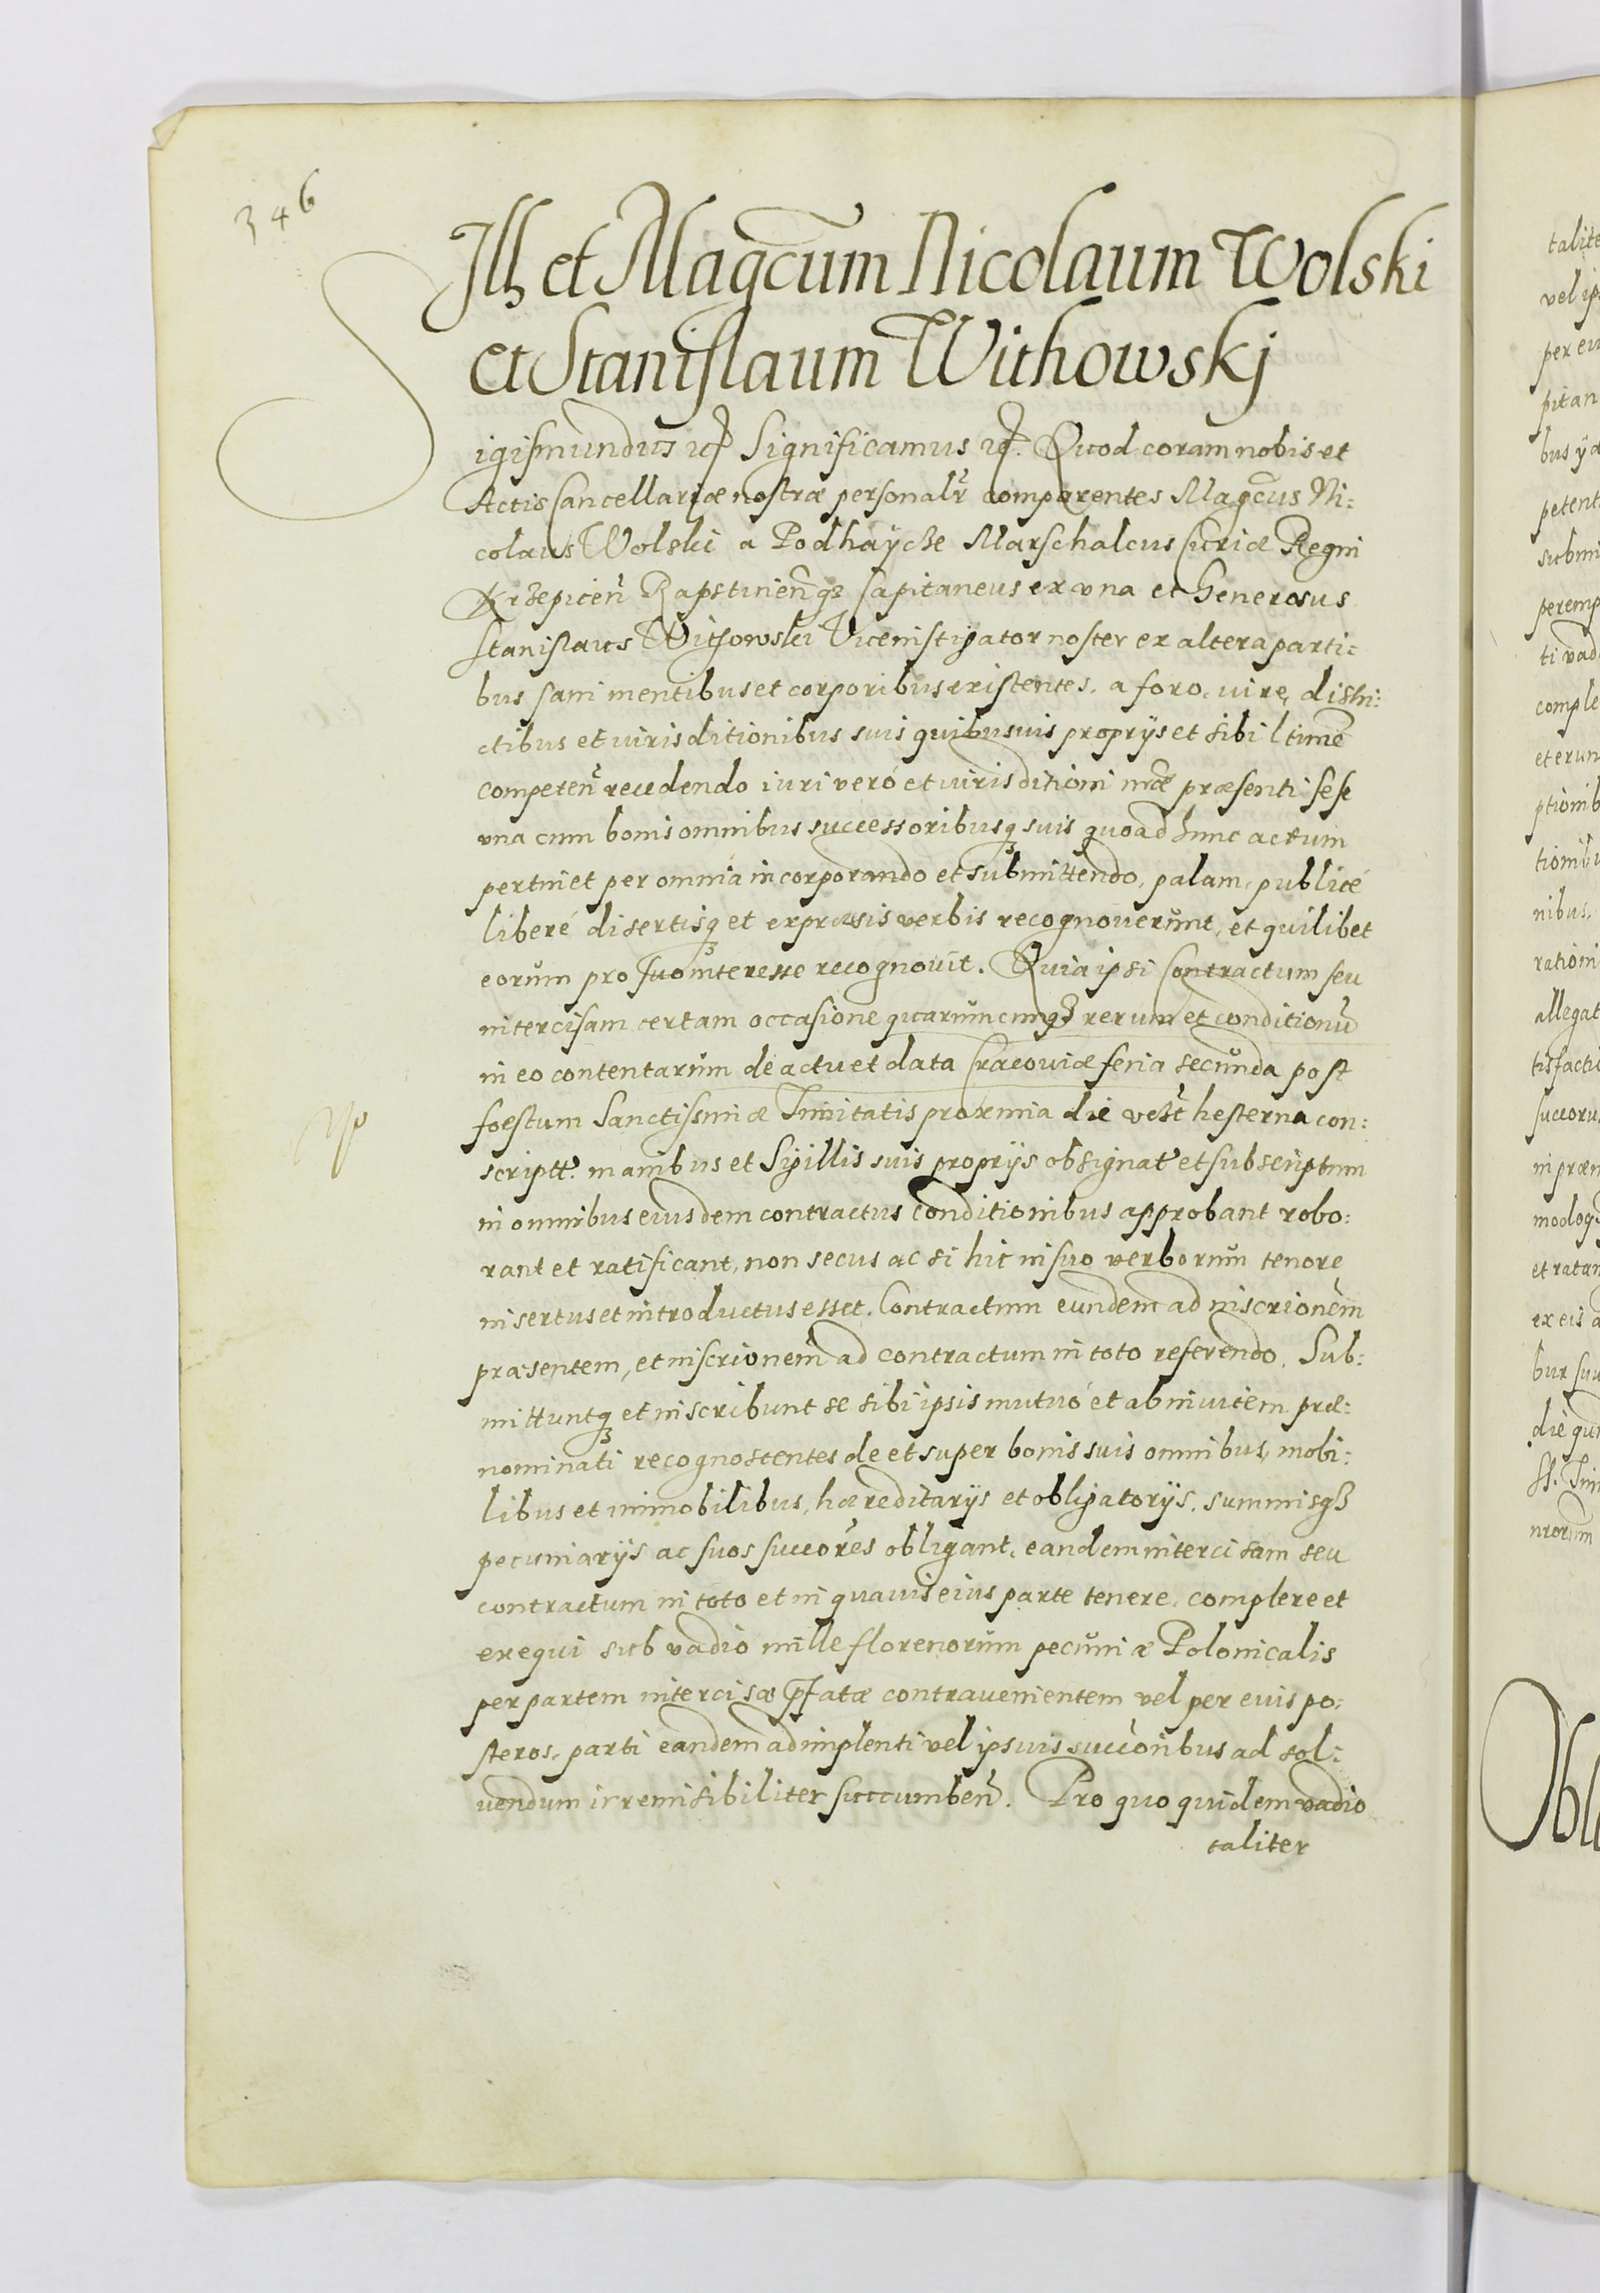 346
Ill et Magcum Nicolaum Wolski
et Stanislaum Withowskj
Sigismundus etc Significamus etc. Quod coram nobis et
Actis Cancellariæ nostræ personalr comparentes Magcus Ni:
colaus Wolski a Podhaycze Marschalcus Curiæ Regni
Krzepicen Rapstinenq3 Capitaneus ex una et Generosus
Stanislaus Withowski Viceinstigator noster ex altera parti:
bus sani mentibus et corporibus existentes, a foro, iure, distri:
ctibus et iurisditionibus suis quibusuis proprijs et sibi ltime
competen recedendo iuri veró et iurisditioni nræ præsenti sese
una cum bonis omnibus successoribusq3 suis quo ad hunc actum
pertinet per omnia incorporando et submittendo, palam, publicé
liberé disertisq3 et expressis verbis recognouerunt, et quilibet
eorum pro suo interesse recognouit. Quia ipsi Contractum seu
intercisam certam occasione quarumcunq3 rerum et conditionu
in eo contentarum de actu et data Cracouiæ feria secunda post
foestum Sanctissimæ Trinitatis proxima die vest hesterna con:
scriptt. manibus et Sigillis suis proprijs obsignat et subscriptum
in omnibus eiusdem contractus conditionibus approbant robo:
rant et ratificant, non secus ac si hic in suo verborum tenore
insertus et introductus esset. Contractum eundem ad inscrionem
præsentem, et inscrionem ad contractum in toto referendo. Sub:
mittuntq3 et inscribunt se sibi ipsis mutuó et ab inuicem præ:
nominati recognoscentes de et super bonis suis omnibus, mobi:
libus et immobilibus, hæreditarijs et obligatorijs, summisq3
pecuniarijs ac suos succores obligant, eandem intercisam seu
contractum in toto et in quauis eius parte tenere, complere et
exequi sub vadio mille florenorum pecuniæ Polonicalis
per partem intercisæ pfatæ contrauenientem vel per euis po:
steros, parti eandem adimplenti vel ipsuis succoribus ad sol:
uendum irremisibiliter succumben. Pro quo quidem vadio
taliter